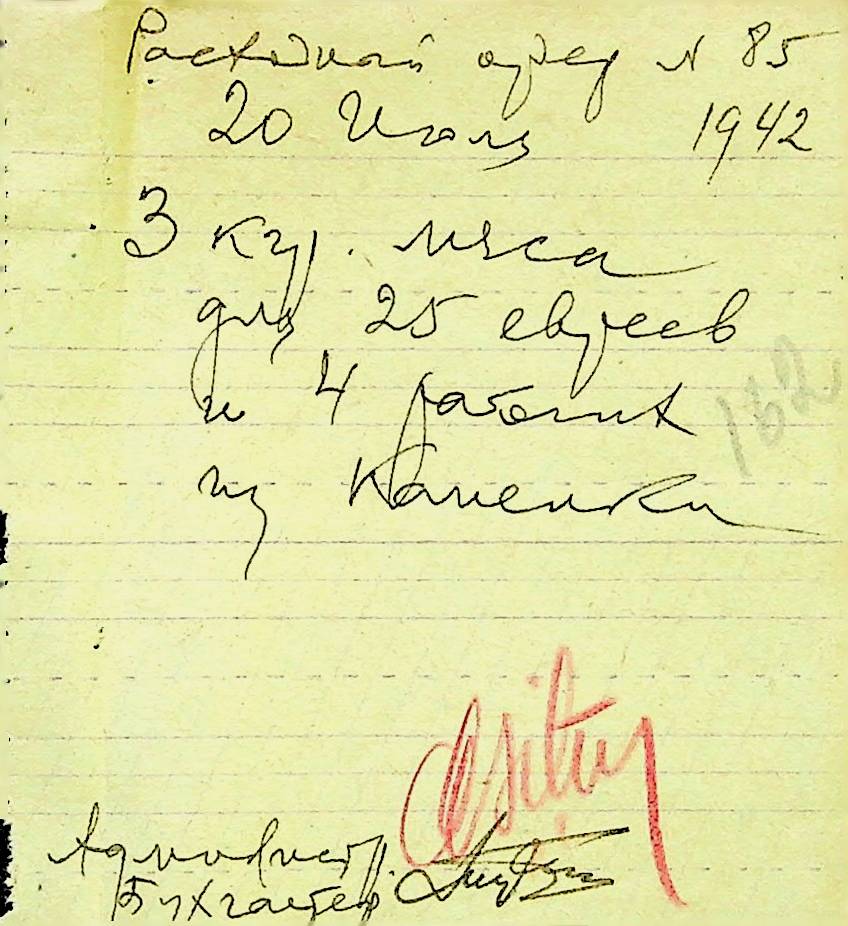 Расходный ордер № 85
20 Июля 1942
3 кгр. мяса
для 25 евреев
и 4 рабочих
из Каменки
162
Администр.
Бухгалтер